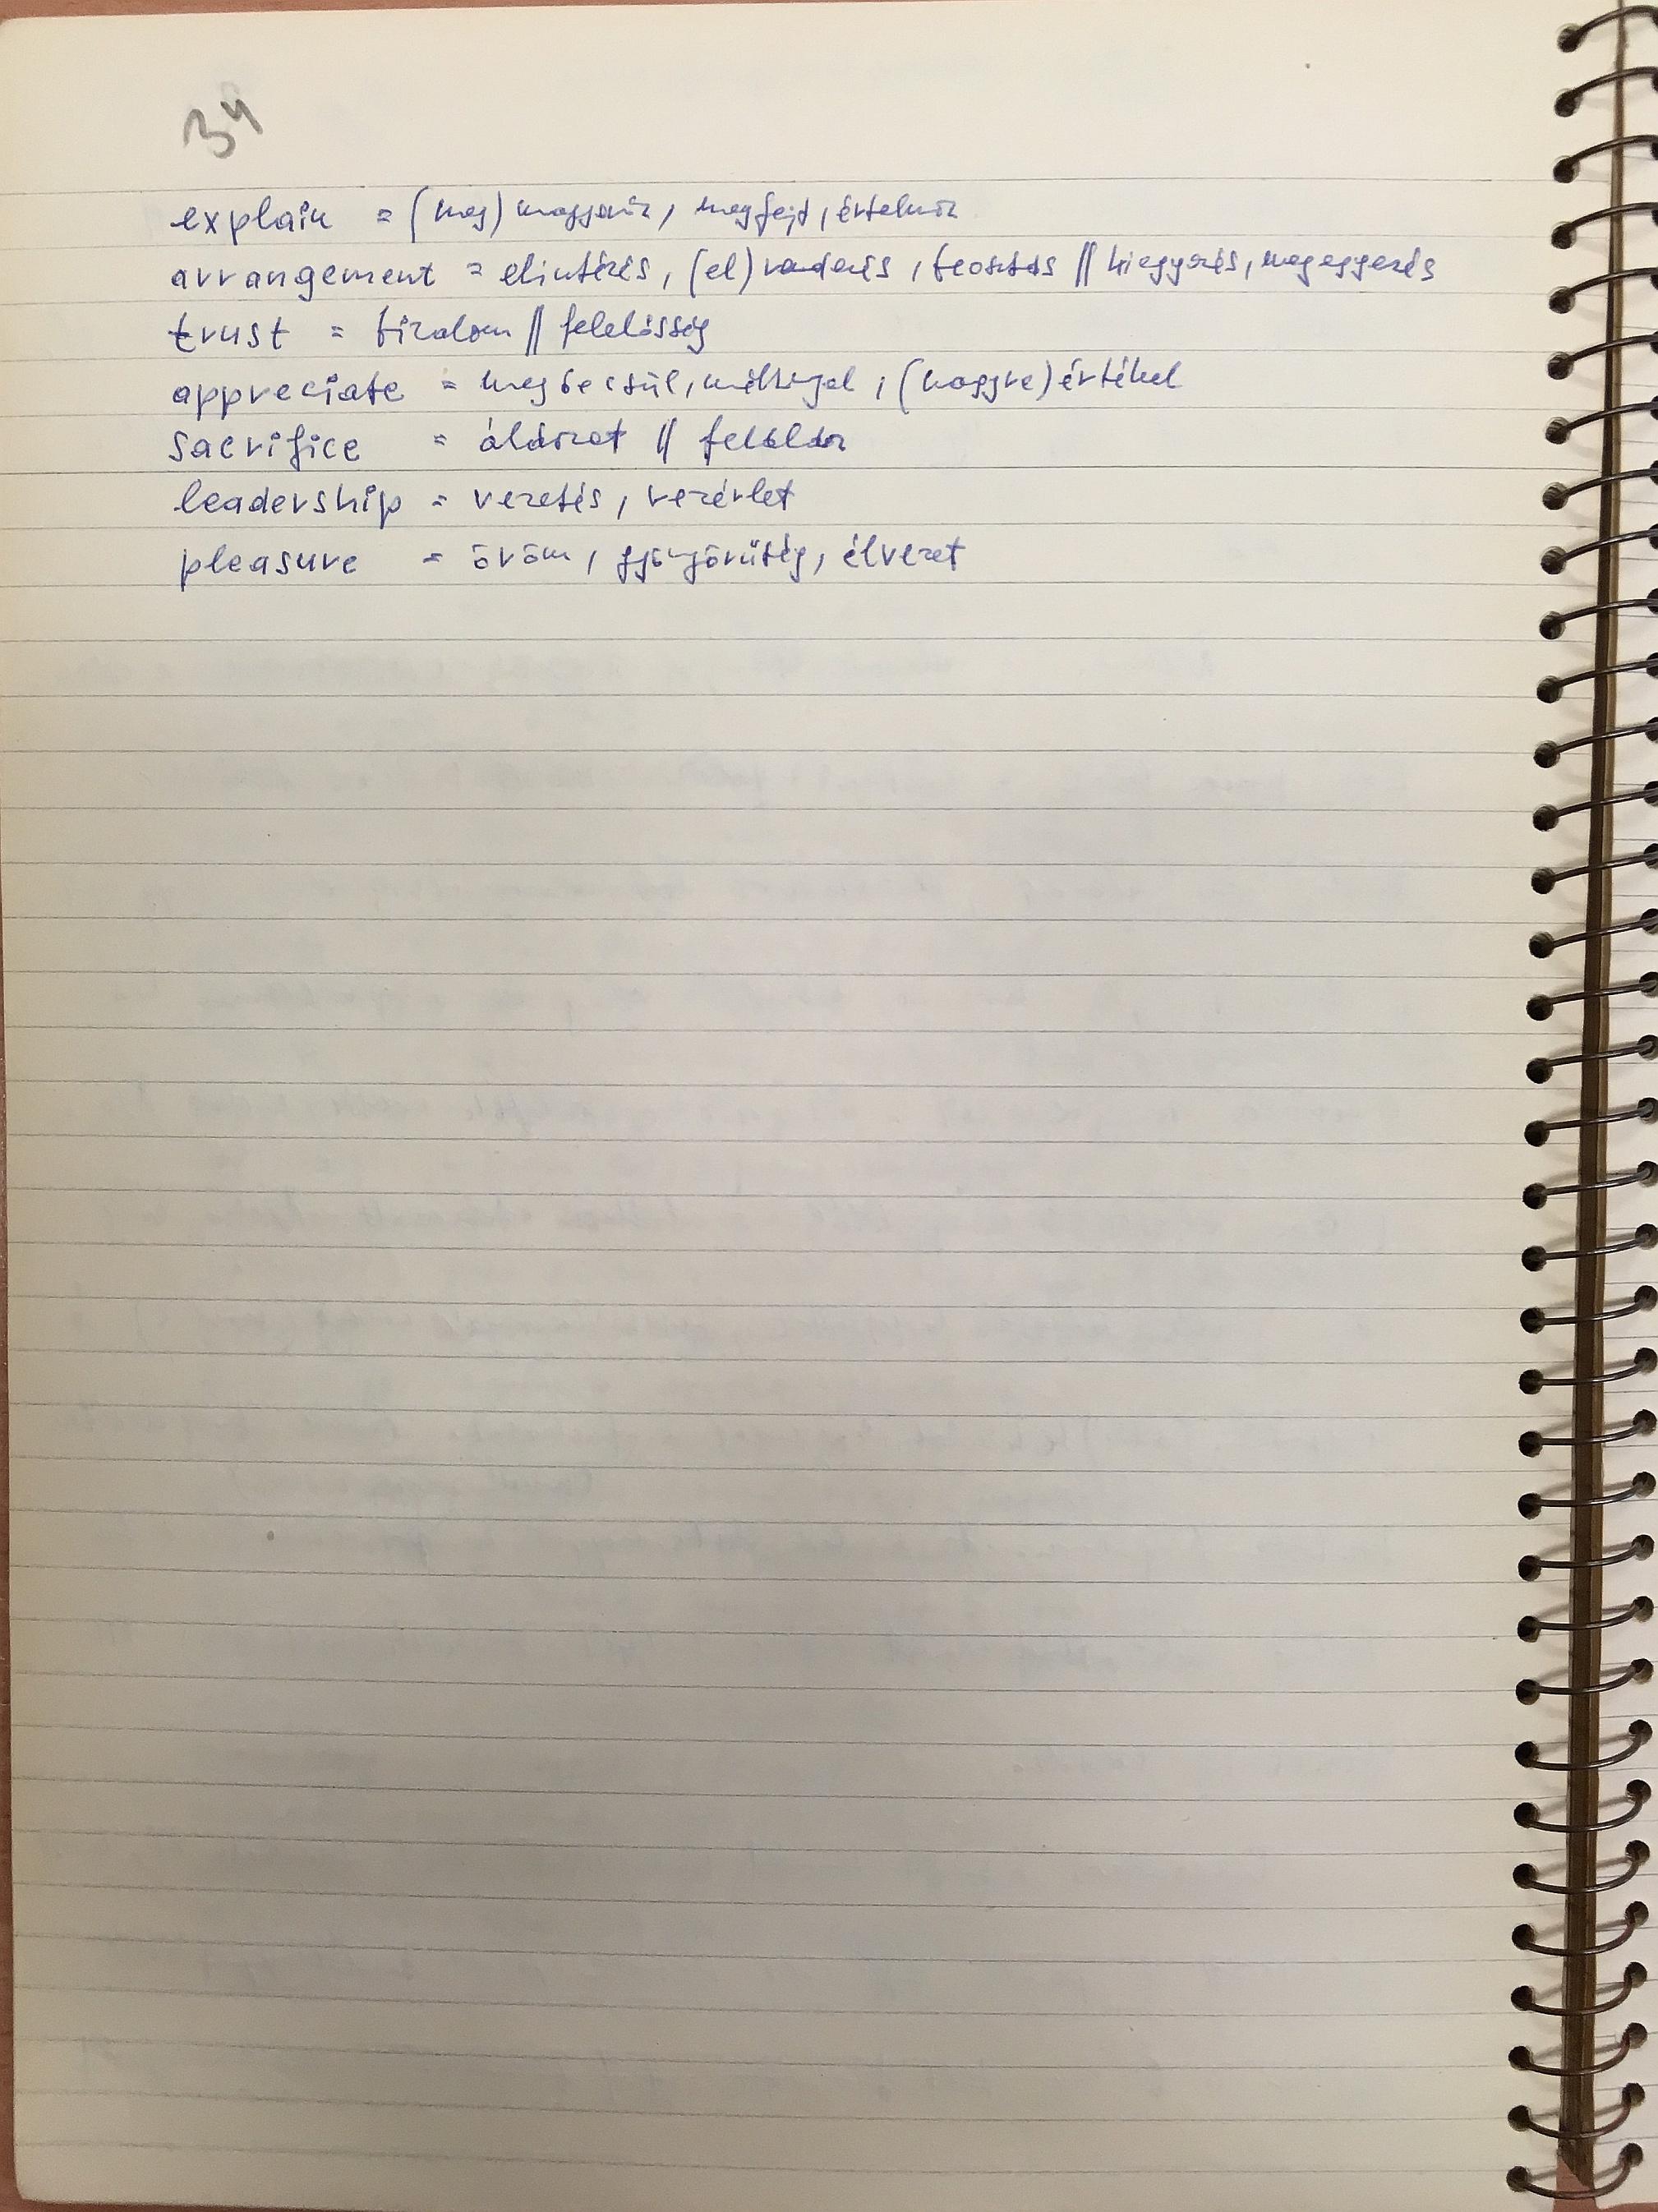 34
explain = (meg)magyaráz, megfejt, értelmez
arrangement = elintézés, (el)rendezés, beosztás || kiegyezés, megegyezés
trust = bizalom || felelősség
appreciate = megbecsül, méltányol, (nagyra)értékel
sacrifice = áldozat || feláldoz
leadership = vezetés, vezérlet
pleasure = öröm, gyönyörűség, élvezet